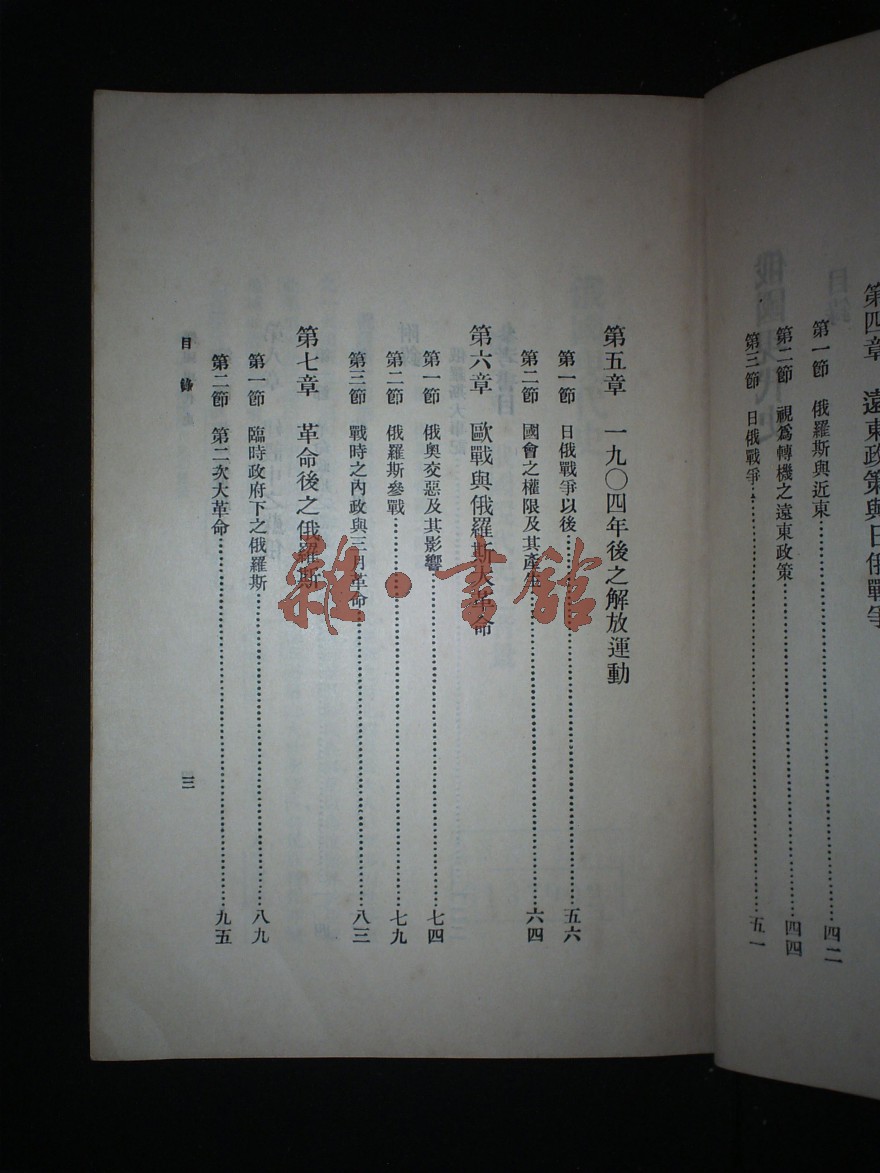 第四章　遠東政策與日俄戰爭
第一節　俄羅斯與近東……四二
第二節　視爲轉機之遠東政策……四四
第三節　日俄戰爭……五一
第五章　一九〇四年後之解放運動
第一節　日俄戰爭以後……五六
第二節　國會之權限及其產生……六四
第六章　歐戰與俄羅斯大革命
第一節　俄奧交惡及其影響……七四
第二節　俄羅斯參戰……七九
第三節　戰時之內政與三月革命……八三
第七章　革命後之俄羅斯
第一節　臨時政府下之俄羅斯……八九
第二節　第二次大革命……九五
目錄
三
雜·書館